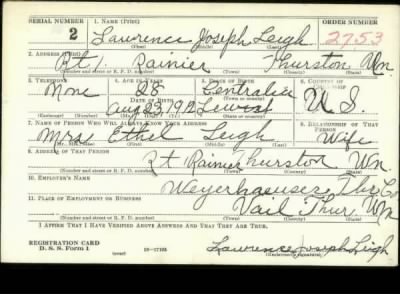 SERIAL NUMBER 1. NAME (Print) ORDER NUMBER
2 Lawrence Joseph Leigh 2753
(First) (Middle) (Last)
2. ADDRESS (Print)
Rt 1. Rainier Thurston Wn.
(Number and street or R. F. D. number) (Town) (County) (State)
3. TELEPHONE 4. AGE IN YEARS 5. PLACE OF BIRTH 6. COUNTRY OF CITIZENSHIP
None 28 Centralia U S.
DATE OF BIRTH (Town or county)
Aug 1912 Lewis
(Exchange) (Number) (Mo.) (Day) (Yr.) (State or country)
7. NAME OF PERSON WHO WILL ALWAYS KNOW YOUR ADDRESS 8. RELATIONSHIP OF THAT PERSON
Mrs Ethel Leigh Wife
(Mr., Mrs., Miss) (First) (Middle) (Last)
9. ADDRESS OF THAT PERSON
Rt Rainier Thurston Wn
(Number and street or R. F. D. number) (Town) (County) (State)
10. EMPLOYER'S NAME
Weyerhaeuser Tbr Co
11. PLACE OF EMPLOYMENT OR BUSINESS
Vail Thur. Wn
(Number and street or R. F. D. number) (Town) (County) (State)
I AFFIRM THAT I HAVE VERIFIED ABOVE ANSWERS AND THAT THEY ARE TRUE.
REGISTRATION CARD
D. S. S. Form 1 (over) 16-17105 Lawrence Joseph Leigh
(Registrant's signature)